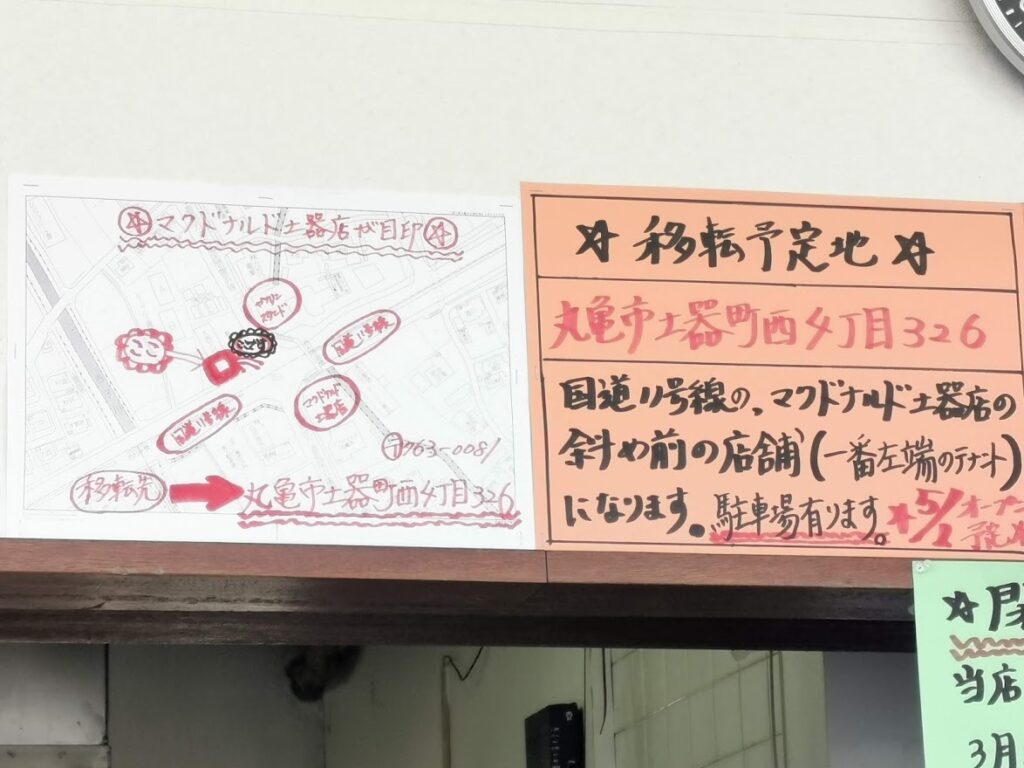 マクドナルド土器店が目印
国道11号線
国道11号線
マクドナルド
土器店
〒763-0081
移転先
丸亀市土器町西4丁目326
☆移転予定地☆
丸亀市土器町西4丁目326
国道11号線の、マクドナルド土器店の
斜め前の店舗(一番左端のテナント)
になります。駐車場有ります。★5/1オープン
予定
当店
3月